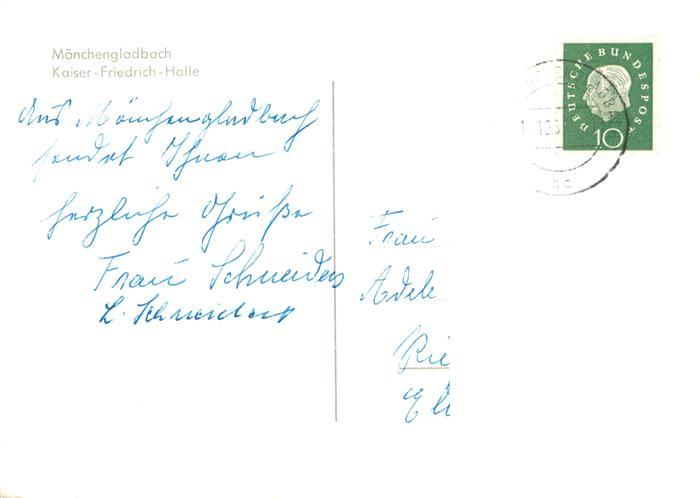 Mönchengladbach
Kaiser-Friedrich-Halle
Aus Mönchengladbach
sendet Ihnen
herzliche Grüße
Frau Schneiders
L. Schneiders
DEUTSCHE BUNDESPOST
10
bc
Frau
Adele
Rie